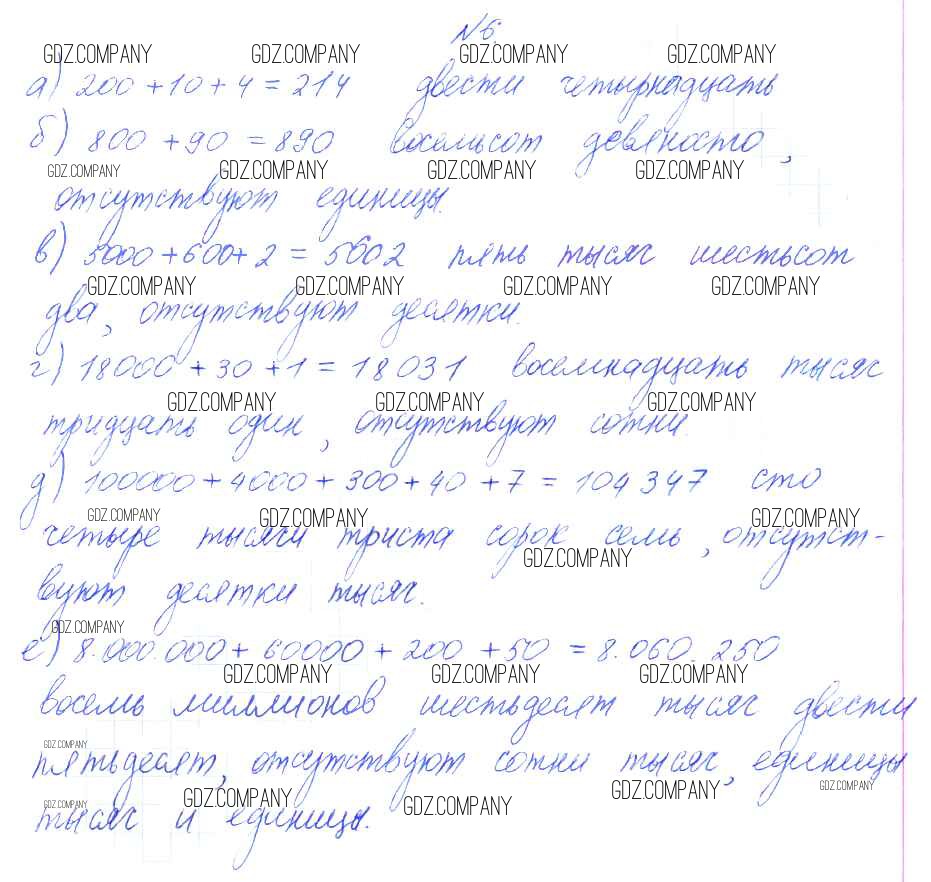 №6.
GDZ.COMPANY GDZ.COMPANY GDZ.COMPANY GDZ.COMPANY
а) 200 + 10 + 4 = 214 двести четырнадцать
б) 800 + 90 = 890 восемьсот девяносто,
GDZ.COMPANY GDZ.COMPANY GDZ.COMPANY GDZ.COMPANY
отсутствуют единицы.
в) 5000 + 600 + 2 = 5602 пять тысяч шестьсот
GDZ.COMPANY GDZ.COMPANY GDZ.COMPANY GDZ.COMPANY
два, отсутствуют десятки.
г) 18000 + 30 + 1 = 18031 восемнадцать тысяч
GDZ.COMPANY GDZ.COMPANY GDZ.COMPANY
тридцать один, отсутствуют сотни.
д) 100000 + 4000 + 300 + 40 + 7 = 104 347 сто
GDZ.COMPANY GDZ.COMPANY GDZ.COMPANY
четыре тысячи триста сорок семь, отсутст-
GDZ.COMPANY
вуют десятки тысяч.
GDZ.COMPANY
е) 8.000.000 + 60000 + 200 + 50 = 8.060.250
GDZ.COMPANY GDZ.COMPANY GDZ.COMPANY
восемь миллионов шестьдесят тысяч двести
GDZ.COMPANY
пятьдесят, отсутствуют сотни тысяч, единицы
GDZ.COMPANY GDZ.COMPANY GDZ.COMPANY GDZ.COMPANY GDZ.COMPANY
тысяч и единицы.